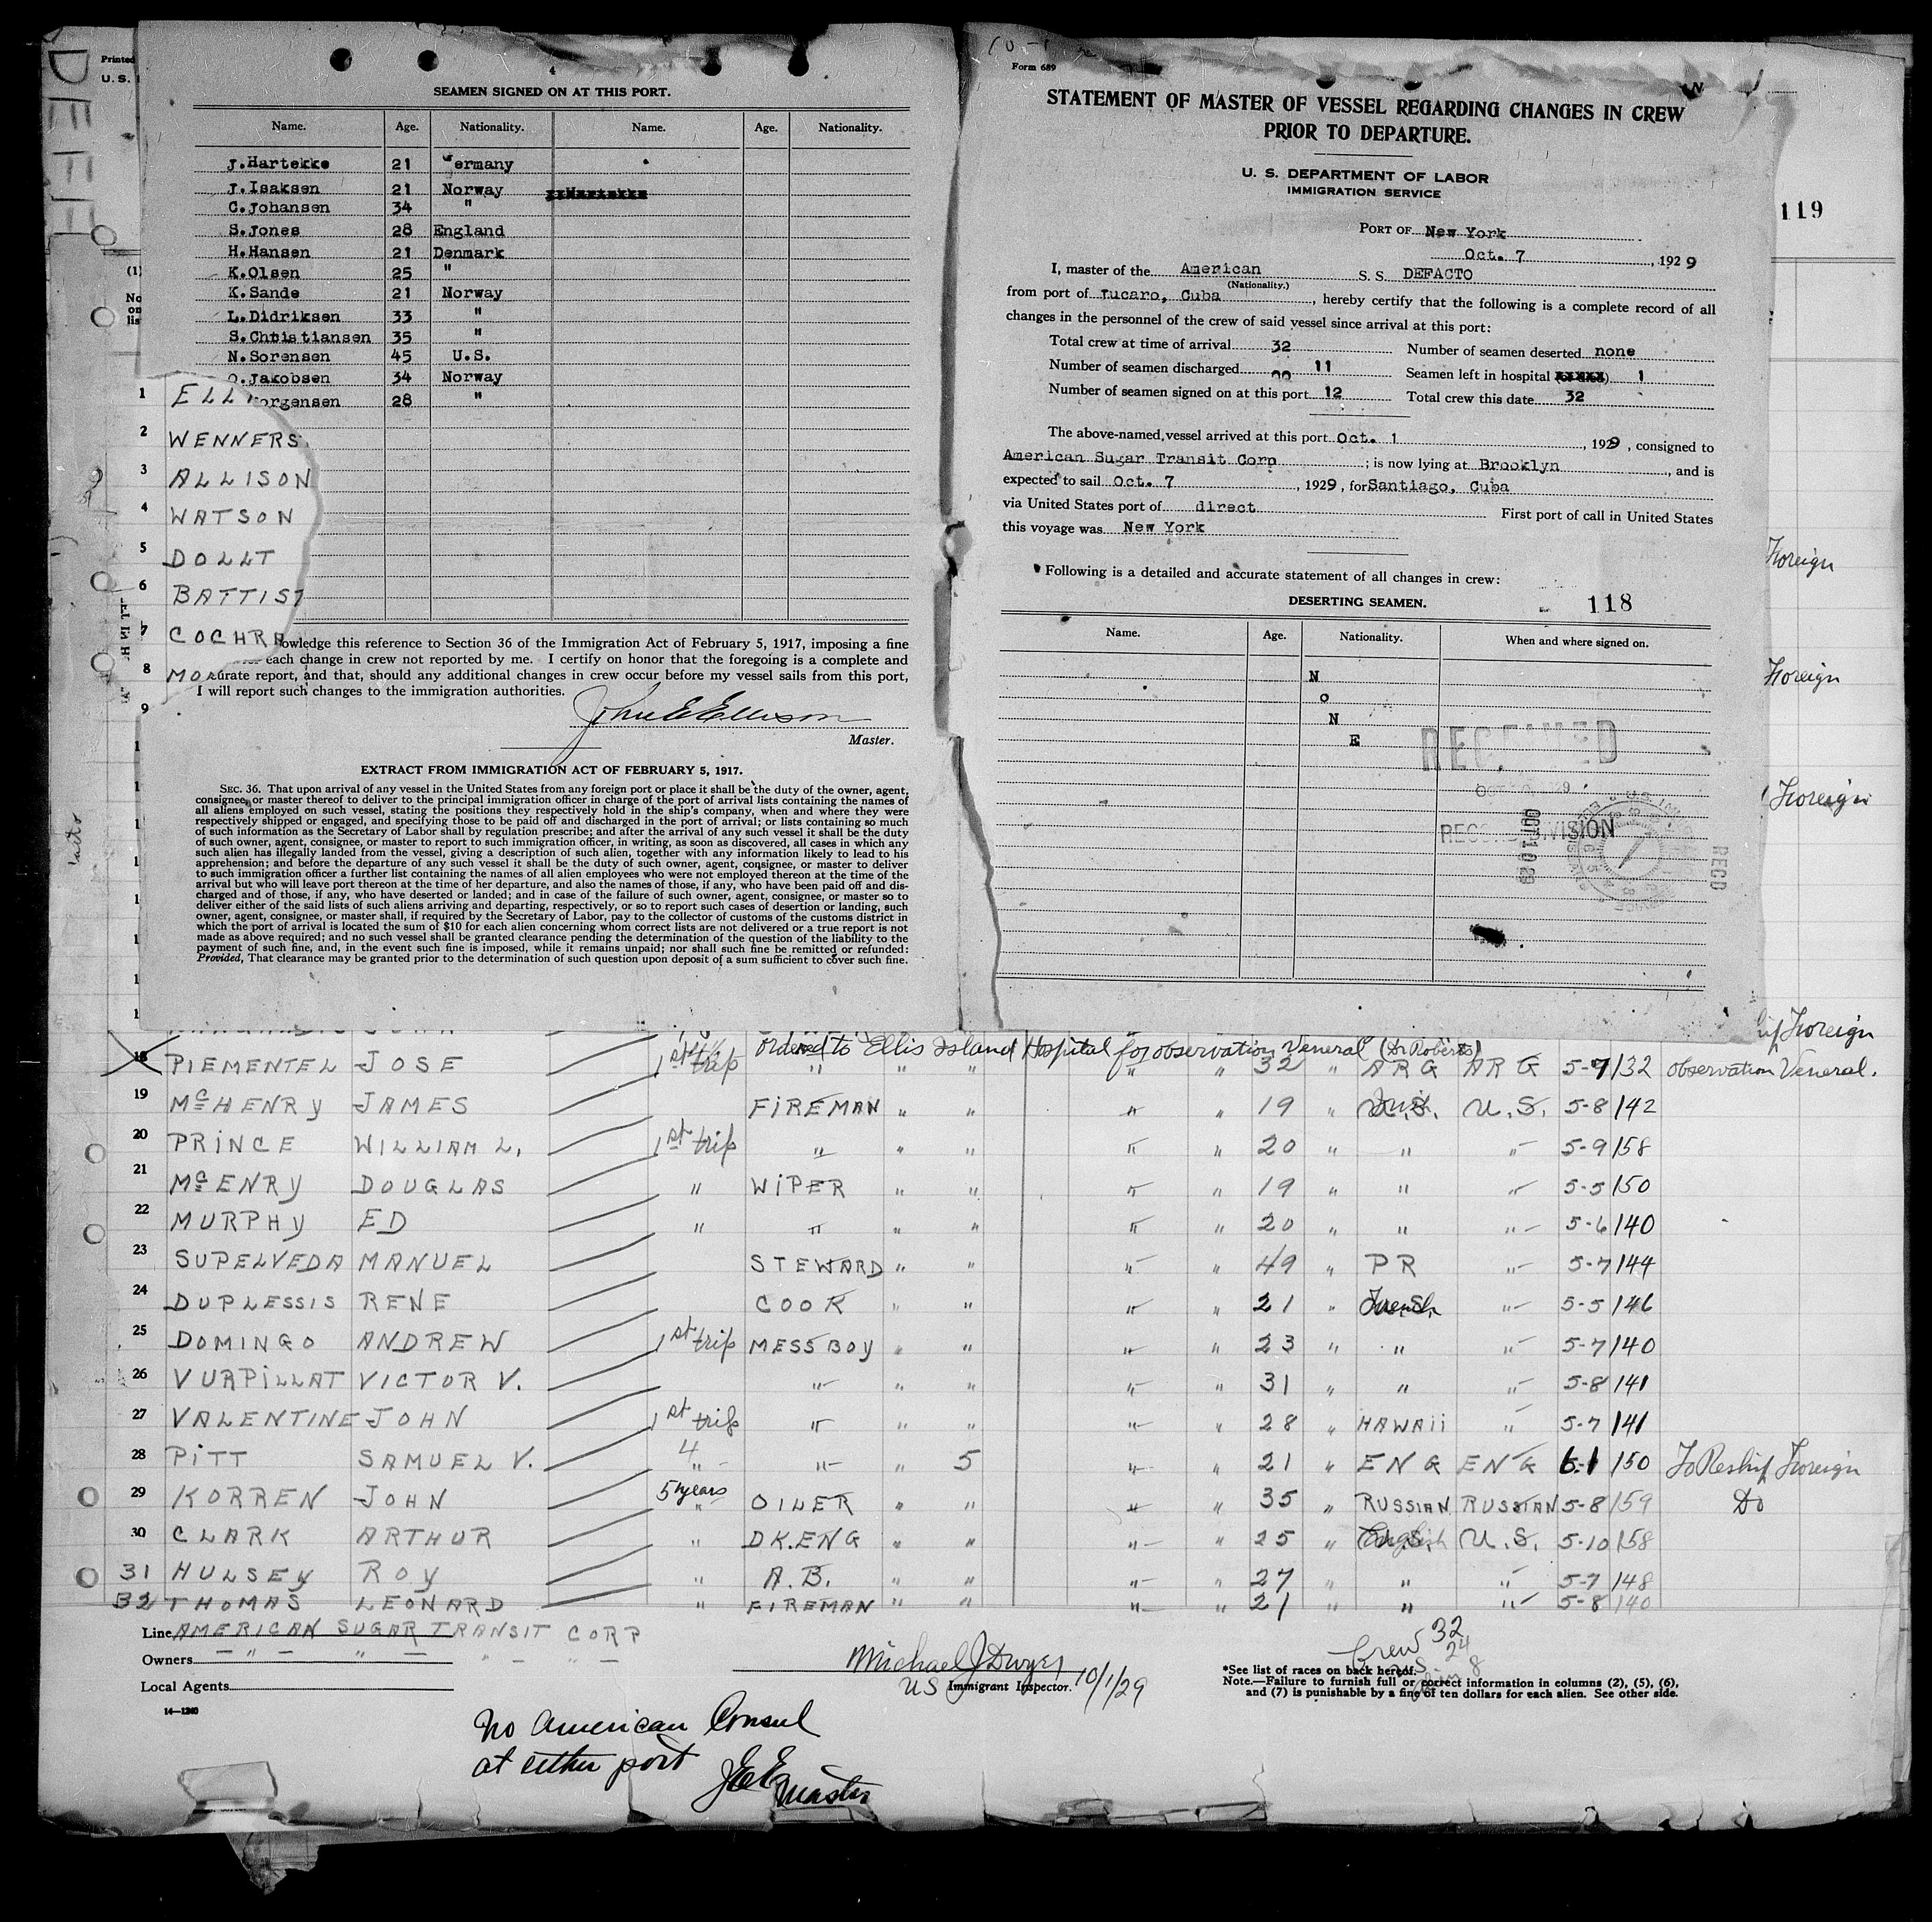 DEFF
Printed
U. S.
4
SEAMEN SIGNED ON AT THIS PORT.
Name. Age. Nationality. Name. Age. Nationality.
J.Hartekke 21 Germany
J.Isaksen 21 Norway
C.Johansen 34 "
S.Jones 28 England
H.Hansen 21 Denmark
K.Olsen 25 "
K.Sande 21 Norway
L.Didriksen 33 "
S.Christiansen 35 "
N.Sorensen 45 U.S.
O.Jakobsen 34 Norway
orgensen 28 "
1 ELL
2 WENNERS
3 ALLISON
4 WATSON
5 DOLLT
6 BATTIST
7 COCHRA
8 MOR
9
owledge this reference to Section 36 of the Immigration Act of February 5, 1917, imposing a fine
each change in crew not reported by me. I certify on honor that the foregoing is a complete and
urate report, and that, should any additional changes in crew occur before my vessel sails from this port,
I will report such changes to the immigration authorities.
John E Ellison
Master.
EXTRACT FROM IMMIGRATION ACT OF FEBRUARY 5, 1917.
SEC. 36. That upon arrival of any vessel in the United States from any foreign port or place it shall be the duty of the owner, agent,
consignee, or master thereof to deliver to the principal immigration officer in charge of the port of arrival lists containing the names of
all aliens employed on such vessel, stating the positions they respectively hold in the ship's company, when and where they were
respectively shipped or engaged, and specifying those to be paid off and discharged in the port of arrival; or lists containing so much
of such information as the Secretary of Labor shall by regulation prescribe; and after the arrival of any such vessel it shall be the duty
of such owner, agent, consignee, or master to report to such immigration officer, in writing, as soon as discovered, all cases in which any
such alien has illegally landed from the vessel, giving a description of such alien, together with any information likely to lead to his
apprehension; and before the departure of any such vessel it shall be the duty of such owner, agent, consignee, or master to deliver
to such immigration officer a further list containing the names of all alien employees who were not employed thereon at the time of the
arrival but who will leave port thereon at the time of her departure, and also the names of those, if any, who have been paid off and dis-
charged and of those, if any, who have deserted or landed; and in case of the failure of such owner, agent, consignee, or master so to
deliver either of the said lists of such aliens arriving and departing, respectively, or so to report such cases of desertion or landing, such
owner, agent, consignee, or master shall, if required by the Secretary of Labor, pay to the collector of customs of the customs district in
which the port of arrival is located the sum of $10 for each alien concerning whom correct lists are not delivered or a true report is not
made as above required; and no such vessel shall be granted clearance pending the determination of the question of the liability to the
payment of such fine, and, in the event such fine is imposed, while it remains unpaid; nor shall such fine be remitted or refunded:
Provided, That clearance may be granted prior to the determination of such question upon deposit of a sum sufficient to cover such fine.
Form 689
STATEMENT OF MASTER OF VESSEL REGARDING CHANGES IN CREW
PRIOR TO DEPARTURE.
U. S. DEPARTMENT OF LABOR
IMMIGRATION SERVICE
119
PORT OF New York
Oct. 7, 1929
I, master of the American S. S. DEFACTO
(Nationality.)
from port of Jucaro, Cuba, hereby certify that the following is a complete record of all
changes in the personnel of the crew of said vessel since arrival at this port:
Total crew at time of arrival 32 Number of seamen deserted none
Number of seamen discharged 11 Seamen left in hospital 1
Number of seamen signed on at this port 12 Total crew this date 32
The above-named vessel arrived at this port Oct. 1, 1929, consigned to
American Sugar Transit Corp; is now lying at Brooklyn, and is
expected to sail Oct. 7, 1929, for Santiago, Cuba
via United States port of direct First port of call in United States
this voyage was New York
Following is a detailed and accurate statement of all changes in crew:
DESERTING SEAMEN. 118
Name. Age. Nationality. When and where signed on.
N
O
N
E
RECEIVED
OCT 10 29
RECD
Foreign
Foreign
Foreign
Foreign
Ordered to Ellis Island Hospital for observation Veneral (Dr Roberts)
18 PIEMENTEL JOSE 1st trip " " " " " 32 " ARG ARG 5-7 132 observation Veneral.
19 McHENRY JAMES FIREMAN " " " " 19 " U.S. 5-8 142
20 PRINCE WILLIAM L. 1st trip " " " " " 20 " " " 5-9 158
21 McENRY DOUGLAS " WIPER " " " " 19 " " " 5-5 150
22 MURPHY ED " " " " " " 20 " " " 5-6 140
23 SUPELVEDA MANUEL STEWARD " " " " 49 " PR " 5-7 144
24 DUPLESSIS RENE COOK " " " " 21 " French " 5-5 146
25 DOMINGO ANDREW 1st trip MESS BOY " " " " 23 " " " 5-7 140
26 VURPILLAT VICTOR V. " " " " " 31 " " " 5-8 141
27 VALENTINE JOHN 1st trip " " " " " 28 " HAWAII " 5-7 141
28 PITT SAMUEL V. 4 " " " 5 " " 21 " ENG ENG 6-1 150 To Reship Foreign
29 KORREN JOHN 5 years " OILER " " " " 35 " RUSSIAN RUSSIAN 5-8 159 Do
30 CLARK ARTHUR " DK.ENG " " " " 25 " English U.S. 5-10 158
31 HULSEY ROY " A.B. " " " " 27 " " " 5-7 148
32 THOMAS LEONARD " FIREMAN " " " " 21 " " " 5-8 140
Line AMERICAN SUGAR TRANSIT CORP
Owners - " - " - " - " -
Local Agents
14—1240
Michael J Dwyer 10/1/29
US Immigrant Inspector.
Crew 32
U.S. 24
8
*See list of races on back hereof.
Note.—Failure to furnish full or correct information in columns (2), (5), (6),
and (7) is punishable by a fine of ten dollars for each alien. See other side.
No American Consul
at either port
JEE
Master